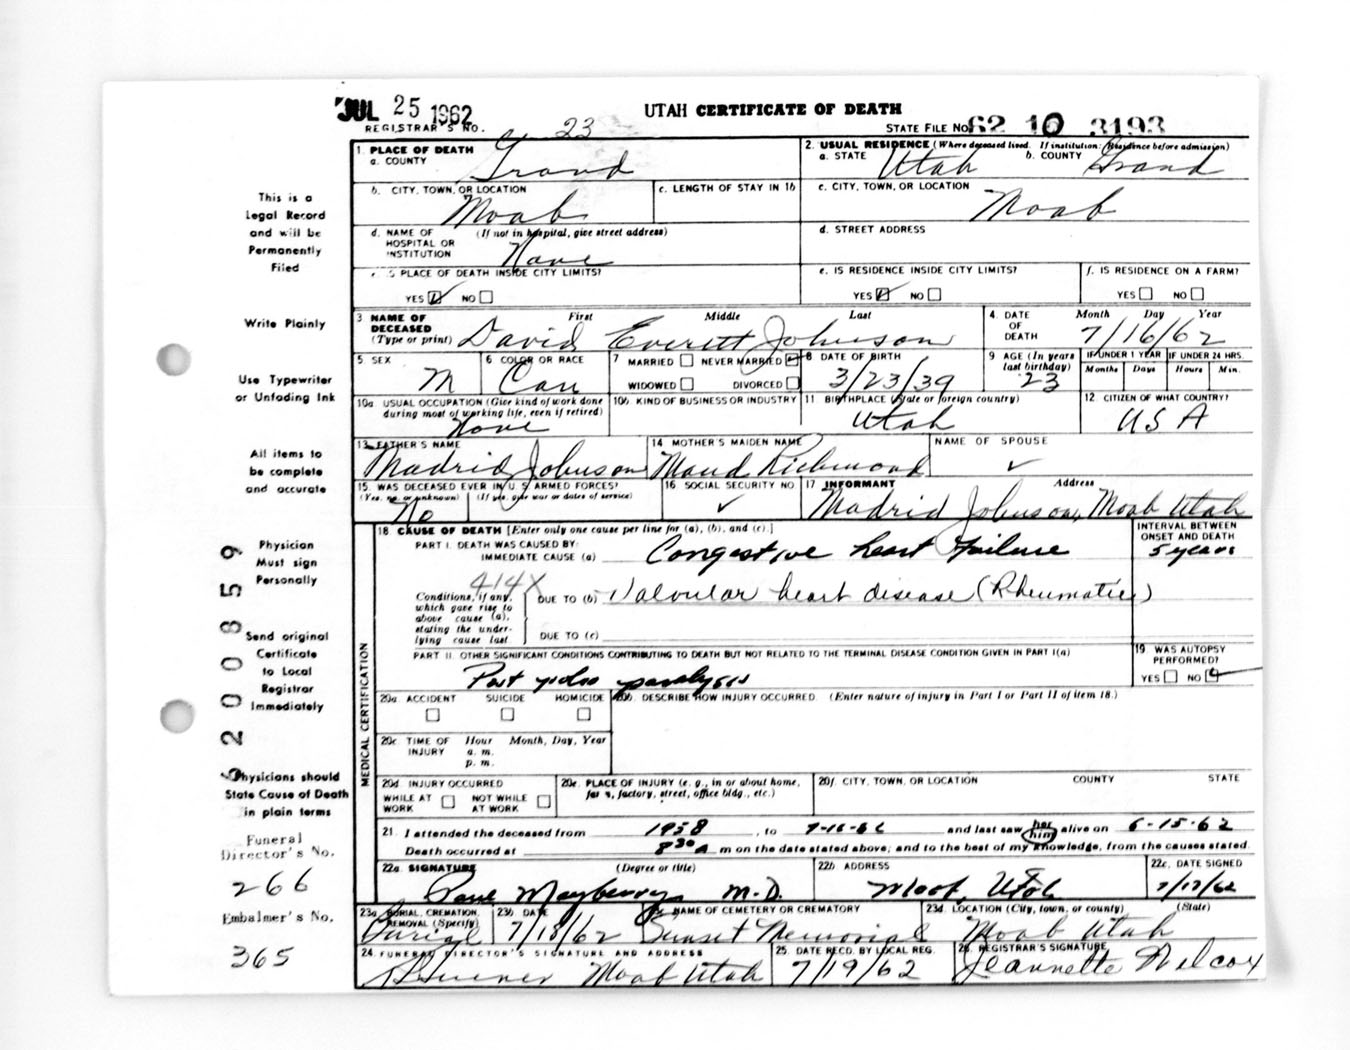 JUL 25 1962
UTAH CERTIFICATE OF DEATH
REGISTRAR'S NO. 23
STATE FILE No. 62 10 3193
1. PLACE OF DEATH
a. COUNTY Grand
2. USUAL RESIDENCE (Where deceased lived. If institution: Residence before admission)
a. STATE Utah b. COUNTY Grand
b. CITY, TOWN, OR LOCATION Moab
c. LENGTH OF STAY IN 1b
c. CITY, TOWN, OR LOCATION Moab
d. NAME OF HOSPITAL OR INSTITUTION (If not in hospital, give street address) None
d. STREET ADDRESS
e. IS PLACE OF DEATH INSIDE CITY LIMITS?
YES NO
e. IS RESIDENCE INSIDE CITY LIMITS?
YES NO
f. IS RESIDENCE ON A FARM?
YES NO
3 NAME OF DECEASED (Type or print) First Middle Last
David Everett Johnson
4. DATE OF DEATH Month Day Year
7/16/62
5. SEX M
6 COLOR OR RACE Cau
7 MARRIED NEVER MARRIED
WIDOWED DIVORCED
8 DATE OF BIRTH 3/23/39
9 AGE (In years last birthday) 23
IF UNDER 1 YEAR IF UNDER 24 HRS.
Months Days Hours Min.
10a. USUAL OCCUPATION (Give kind of work done during most of working life, even if retired) None
10b. KIND OF BUSINESS OR INDUSTRY
11 BIRTHPLACE (State or foreign country) Utah
12 CITIZEN OF WHAT COUNTRY? USA
13. FATHER'S NAME Madrid Johnson
14 MOTHER'S MAIDEN NAME Maud Richmond
NAME OF SPOUSE
15. WAS DECEASED EVER IN U. S. ARMED FORCES?
(Yes, no, or unknown) (If yes, give war or dates of service)
No
16 SOCIAL SECURITY NO.
17 INFORMANT Address
Madrid Johnson, Moab Utah
18 CAUSE OF DEATH [Enter only one cause per line for (a), (b), and (c).]
INTERVAL BETWEEN ONSET AND DEATH
PART I. DEATH WAS CAUSED BY:
IMMEDIATE CAUSE (a) Congestive heart failure 5 years
414X
Conditions, if any, which gave rise to above cause (a), stating the underlying cause last.
DUE TO (b) Valvular heart disease (Rheumatic)
DUE TO (c)
PART II. OTHER SIGNIFICANT CONDITIONS CONTRIBUTING TO DEATH BUT NOT RELATED TO THE TERMINAL DISEASE CONDITION GIVEN IN PART I(a)
Post polio paralysis
19 WAS AUTOPSY PERFORMED?
YES NO
20a. ACCIDENT SUICIDE HOMICIDE
20b. DESCRIBE HOW INJURY OCCURRED. (Enter nature of injury in Part I or Part II of item 18.)
20c. TIME OF INJURY Hour Month, Day, Year
a. m.
p. m.
20d. INJURY OCCURRED
WHILE AT WORK NOT WHILE AT WORK
20e. PLACE OF INJURY (e. g., in or about home, farm, factory, street, office bldg., etc.)
20f. CITY, TOWN, OR LOCATION COUNTY STATE
21. I attended the deceased from 1958, to 7-16-62 and last saw her him alive on 6-15-62
Death occurred at 8 30 A m on the date stated above; and to the best of my knowledge, from the causes stated.
22a. SIGNATURE (Degree or title)
Paul Mayberry M.D.
22b ADDRESS Moab, Utah
22c. DATE SIGNED 7/17/62
23a. BURIAL, CREMATION, REMOVAL (Specify) Burial
23b. DATE 7/18/62
23c. NAME OF CEMETERY OR CREMATORY Sunset Memorial
23d. LOCATION (City, town, or county) (State) Moab Utah
24. FUNERAL DIRECTOR'S SIGNATURE AND ADDRESS
Moab Utah
25. DATE RECD. BY LOCAL REG. 7/19/62
26. REGISTRAR'S SIGNATURE Jeannette Wilcox
MEDICAL CERTIFICATION
This is a
Legal Record
and will be
Permanently
Filed
Write Plainly
Use Typewriter
or Unfading Ink
All items to
be complete
and accurate
Physician
Must sign
Personally
Send original
Certificate
to Local
Registrar
Immediately
Physicians should
State Cause of Death
in plain terms
Funeral
Director's No.
266
Embalmer's No.
365